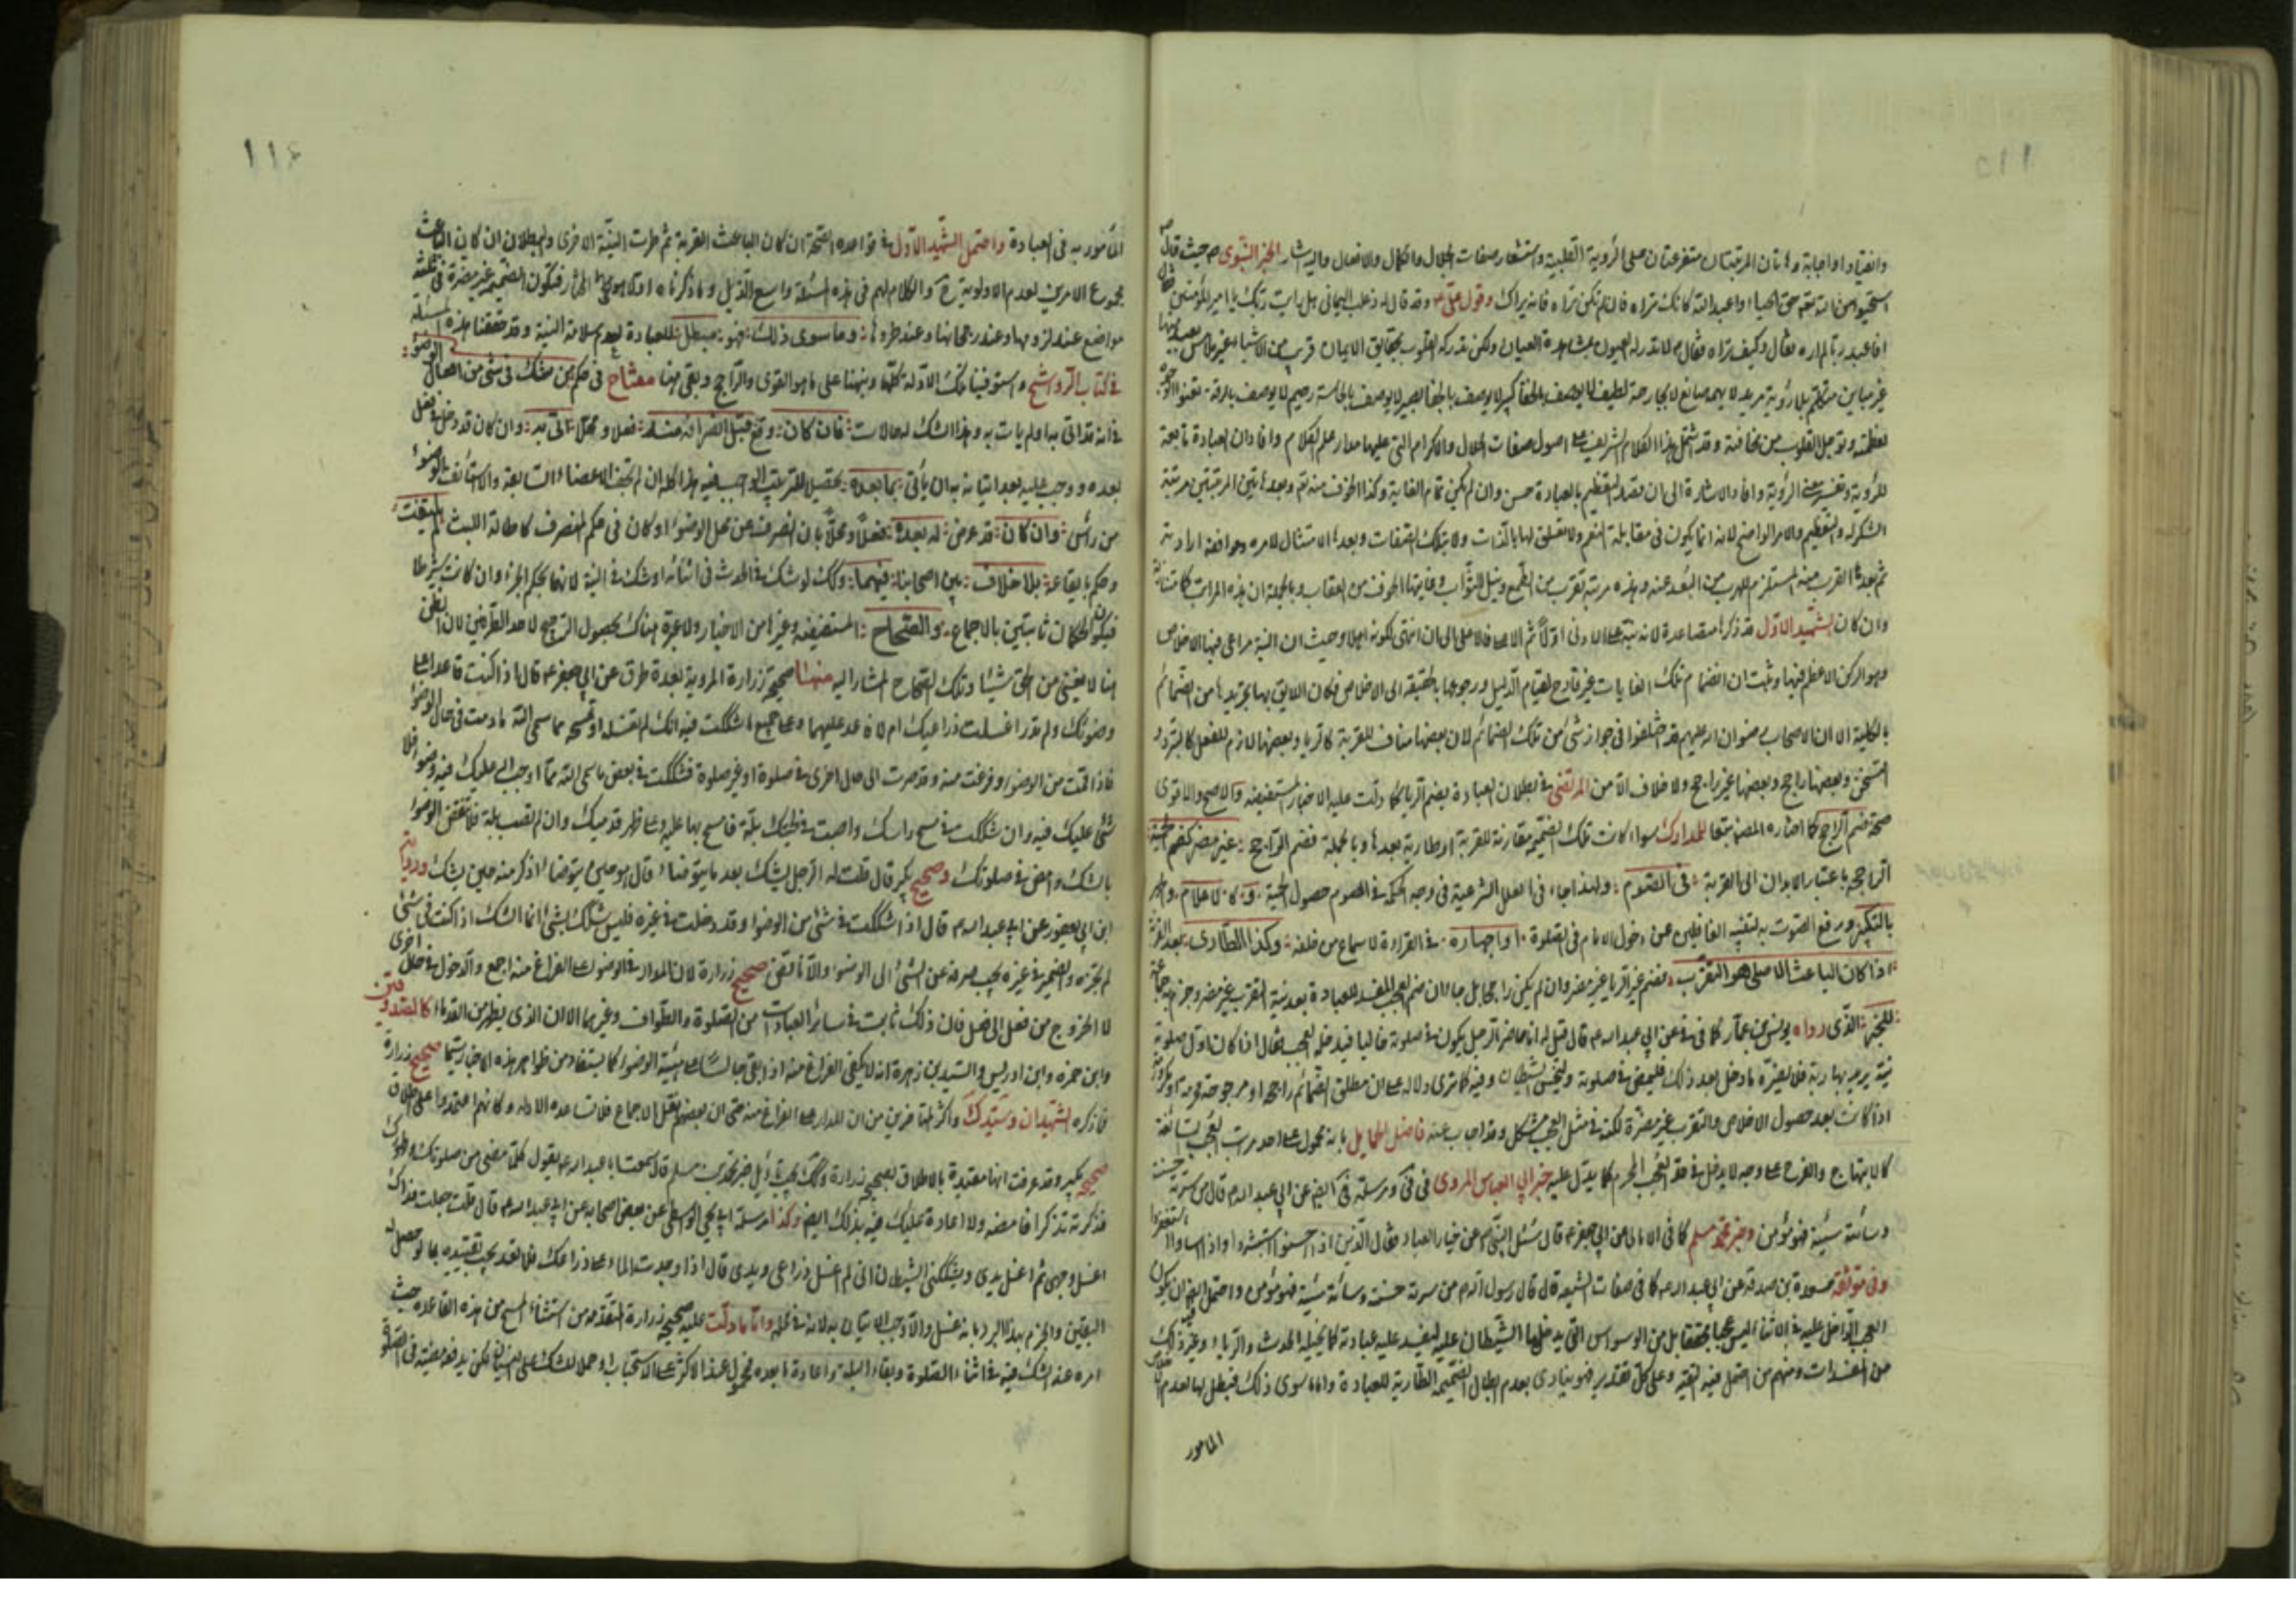 ١١٥
وانقيادا واجابة وهاتان المرتبتان متفرعتان على الرؤية القلبية واستشعار صفات الجلال والكمال والافعال واليه اشار الخبر النبوى ص حيث قال
استحيوا من الله حق الحياء واعبد الله كانك تراه فان لم تكن تراه فانه يراك وقول على ع وقد قال له ذعلب اليمانى هل رايت ربك يا امير المؤمنين فقال
افاعبد ربا لم اره فقال وكيف تراه فقال لا تدركه العيون بمشاهدة العيان ولكن تدركه القلوب بحقايق الايمان قريب من الاشياء غير ملامس بعيد منها
غير مباين متكلم بلا رؤية مريد لا بهمة صانع لا بجارحة لطيف لا يوصف بالخفا كبير لا يوصف بالجفا بصير لا يوصف بالحاسة رحيم لا يوصف بالرقة تعنو الوجوه
لعظمته وتوجل القلوب من مخافته وقد اشتمل هذا الكلام الشريف على اصول صفات الجلال والاكرام التى عليها مدار علم الكلام وافاد ان العبادة تابعة
للرؤية وتفسير معنى الرؤية وافاد الاشارة الى ان قصد التعظيم بالعبادة حسن وان لم يكن تمام الغاية وكذا الخوف منه تعالى وبعد هاتين المرتبتين مرتبة
الشكر له والتعظيم والامر الواضح لانه انما يكون فى مقابلة النعم ولا تعلق لها بالذات ولا بتلك الصفات وبعدها الامتثال لامره وموافقة ارادته
ثم بعدها القرب منه المستلزم للهرب من البعد عنه وهذه مرتبة تقرب من الطمع ونيل الثواب وغايتها الخوف من العقاب وبالجملة ان هذه المراتب
وان كان الشهيد الاول قد ذكرها متصاعدة لانه نبه على الادنى اولا ثم الاعلى فالاعلى الى ان انتهى وحيث ان النية مراعى فيها الاخلاص
وهو الركن الاعظم فيها وثبت ان انضمام تلك الغايات غير قادح لقيام الدليل ورجوعها بالحقيقة الى الاخلاص فكان اللايق بها تجريدها من الضمائم
بالكلية الا ان الاصحاب رضوان الله عليهم قد اختلفوا فى جواز شئ من تلك الضمائم لان بعضها مناف للقربة كالريا وبعضها لازم للفعل كالتبرد و
التسخن وبعضها راجح وبعضها غير راجح ولا خلاف الا من المرتضى فى بطلان العبادة بضم الريا كما دلت عليه الاخبار المستفيضة والاصح والاقوى
صحة ضم الراجح كما اختاره المصنف تبعا للمدارك سواء كانت تلك الضميمة مقارنة للقربة او طارية بعدها وبالجملة فضم الراجح غير مضر كضم الحمية
الراجحة باعتبار الابدان الى القربة فى الصوم ولهذا جاء فى العلل الشرعية فى وجه الحكمة فى الصوم حصول الحمية وكالاعلام
بالتكبير ورفع الصوت به لتنبيه الغافلين عن دخول الامام فى الصلوة او اجهاره فى القراءة لاسماع من خلفه وكذا الطارى بعد القربة
اذا كان الباعث الاصلى هو التقرب فضم غير الريا غير مضر وان لم يكن راجحا بل مباحا ان ضم العجب المفسد للعبادة بعد نية التقرب غير مضر
للخبر الذى رواه يونس بن عمار كما فى عن ابى عبد الله ع قال قيل له انا حاضر الرجل يكون فى صلوته خاليا فيدخله العجب فقال اذا كان اول صلوته
نية يريد بها ربه فلا يضره ما دخل بعد ذلك فليمض فى صلوته وليخسئ الشيطان وفيه كما ترى دلالة على ان مطلق الضمائم راجحة او مرجوحة
اذا كانت بعد حصول الاخلاص والتقرب غير مضرة لكنه فى مثل العجب مشكل وقد اجاب عنه فاضل بانه محمول على احد مراتب العجب السائغة
كالابتهاج والفرح على وجه لا يدخل فى حد العجب المحرم كما يدل عليه خبر ابى العباس المروى فى فى ومرسلته فى الفقيه عن ابى عبد الله ع قال من سرته حسنة
وسائته سيئة فهو مؤمن وخبر محمد بن مسلم كما فى الامالى عن ابى جعفر ع قال سئل النبى ص عن خيار العباد فقال الذين اذا احسنوا استبشروا واذا اساؤا استغفروا
وفى موثقة مسعدة بن صدقة عن ابى عبد الله ع كما فى صفات الشيعة قال قال رسول الله ص من سرته حسنة وسائته سيئة فهو مؤمن واحتمل ان يكون
العجب الداخل عليه فى الاثناء ليس عجبا محققا بل من الوسواس التى يدخلها الشيطان عليه ليفسد عليه عبادته كما يخيله الحدث والريا وغير ذلك
من المفسدات ومنهم من احتمل فيه التقية وعلى كل تقدير فهو ينادى بعدم ابطال الضميمة الطارية للعبادة واما ما سوى ذلك فيبطل بها لعدم
المامور
١١٦
المامور به فى العبادة واحتمل الشهيد الاول فى قواعده الصحة ان كان الباعث القربة ثم طرت النية الاخرى والبطلان ان كان الباعث
مجموع الامرين لعدم الاولوية ح والكلام لهم فى هذه المسئلة واسع الذيل وما ذكرناه فتكون الضميمة غير مضرة فى ثلثة
مواضع عند لزومها وعند رجحانها وعند طروها وما سوى ذلك فهو مبطل للعبادة لعدم سلامة النية وقد حققنا هذه المسئلة
فى كتاب الرواشح واستوفينا تلك الادلة كلها ونبهنا على ما هو القوى والراجح وبقى هنا مفتاح فى حكم من شك فى شئ من افعال الوضوء
فى انه قد اتى به او لم يات به وهذا الشك له حالات فان كان وقع قبل انصرافه منه فعلا ومحلا اتى به وان كان قد دخل فى فعل
بعده ووجب عليه بعد اتيانه به ان ياتى بما بعده تحصيل للترتيب الواجب فيه هذا كله ان لم تجف الاعضاء السابقة والا استانف الوضوء
من راس وان كان قد عرض له بعده فعلا ومحلا بان انصرف عن محل الوضوء او كان فى حكم المنصرف كاطالة اللبث لم يلتفت
وحكم بايقاعه بلا خلاف بين اصحابنا فيهما وكذلك لو شك فى الحدث فى اثنائه او شك فى النية لانها بحكم الجزء وان كانت شرطا
فيكون الحكمان ثابتين بالاجماع والصحاح المستفيضة وغيرها من الاخبار ولا عبرة هناك بحصول الترجيح لاحد الطرفين لان الظن
هنا لا يغنى من الحق شيئا وتلك الصحاح المشار اليه منها صحيح زرارة المروية بعدة طرق عن ابى جعفر ع قال اذا كنت قاعدا على
وضوئك ولم تدر اغسلت ذراعيك ام لا فاعد عليهما وعلى جميع ما شككت فيه انك لم تغسله او تمسحه مما سمى الله ما دمت فى حال الوضوء
فاذا قمت من الوضوء وفرغت منه وقد صرت الى حال اخرى فى صلوة او غير صلوة فشككت فى بعض ما سمى الله مما اوجب الله عليك فيه وضوءا فلا
شئ عليك فيه وان شككت فى مسح راسك واصبت فى لحيتك بلة فامسح بها عليه وعلى ظهر قدميك وان لم تصب بلة فلا تنقض الوضوء
بالشك وامض فى صلوتك وصحيح بكير قال قلت له الرجل يشك بعد ما يتوضا قال هو حين يتوضا اذكر منه حين يشك ورواية
ابن ابى يعفور عن ابى عبد الله ع قال اذا شككت فى شئ من الوضوء وقد دخلت فى غيره فليس شكك بشئ انما الشك اذا كنت فى شئ
لم تجزه والضمير فى غيره يجب صرفه عن الشئ الى الوضوء والا نافى صحيح زرارة لان المدار فى الوضوء على الفراغ منه اجمع والدخول فى حال اخرى
لا الخروج من فعل الى فعل فان ذلك ثابت فى سائر العبادات من الصلوة والطواف وغيرهما الا ان الذى يظهر من القدماء كالصدوقين
وابن حمزة وابن ادريس والسيد بن زهرة انه لا يكفى الفراغ منه اذا بقى جالسا على هيئة الوضوء كما يستفاد من ظواهر هذه الاخبار سيما صحيح زرارة
فاذكره الشهيدان وسيدك واكثر المتاخرين من ان المدار على الفراغ منه حتى ان بعضهم نقل الاجماع فلا تساعده الادلة وكانهم اعتمدوا على اطلاق
صحيح بكير وقد عرفت انها مقيدة بالاطلاق لصحيح زرارة وكذلك يجب تاويل خبر محمد بن مسلم قال سمعت ابا عبد الله ع يقول كلما مضى من صلوتك وطهورك
فذكرته تذكرا فامضه ولا اعادة عليك فيه بذلك ايضا وكذا مرسلة ابى يحيى الواسطى عن بعض اصحابه عن ابى عبد الله ع قال قلت جعلت فداك
اغسل وجهى ثم اغسل يدى ويشككنى الشيطان انى لم اغسل ذراعى ويدى قال اذا وجدت برد الماء على ذراعك فلا تعد يجب تقييده بما لو حصل
اليقين والجزم بهذا البرد بانه غسل والا وجب الاتيان به لانه فى محله واما ما دلت عليه صحيح زرارة المتقدمة من استثناء المسح من هذه القاعدة حيث
امره عند الشك فيه فى اثناء الصلوة وبقاء البلة واعادة ما بعده فمحمول عند الاكثر على الاستحباب او حمل الشك على النسيان لكن يدفعه مضيه فى الصلوة